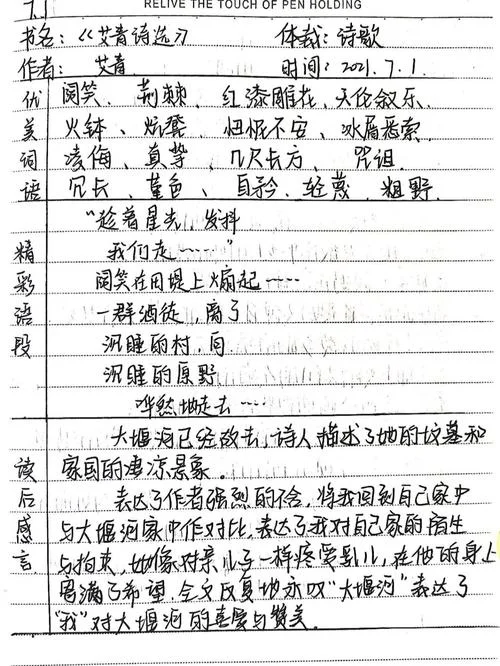 7.1
RELIVE THE TOUCH OF PEN HOLDING
书名:《艾青诗选》 体裁:诗歌
作者: 艾青 时间:2021.7.1.
优美词语
阔笑、荆棘、红漆雕花、天伦叙乐、
火钵、炕凳、忸怩不安、冰屑悉索、
凌侮、真挚、几尺长方、咒诅.
冗长、堇色、自矜、轻蔑、粗野.
精彩语段
“趁着星光,发抖
我们走……”
阔笑在田堤上煽起……
一群酒徒,离了
沉睡的村,向
沉睡的原野
哗然地走去……
读后感言
大堰河已经故去,诗人描述了她的坟墓和
家园的凄凉景象.
表达了作者强烈的不舍,将我回到自己家中
与大堰河家中作对比,表达了我对自己家的陌生
与拘束,她像对亲儿子一样疼爱乳儿,在他的身上
寄满了希望.全文反复地永叹“大堰河”表达了
“我”对大堰河的喜爱与赞美.